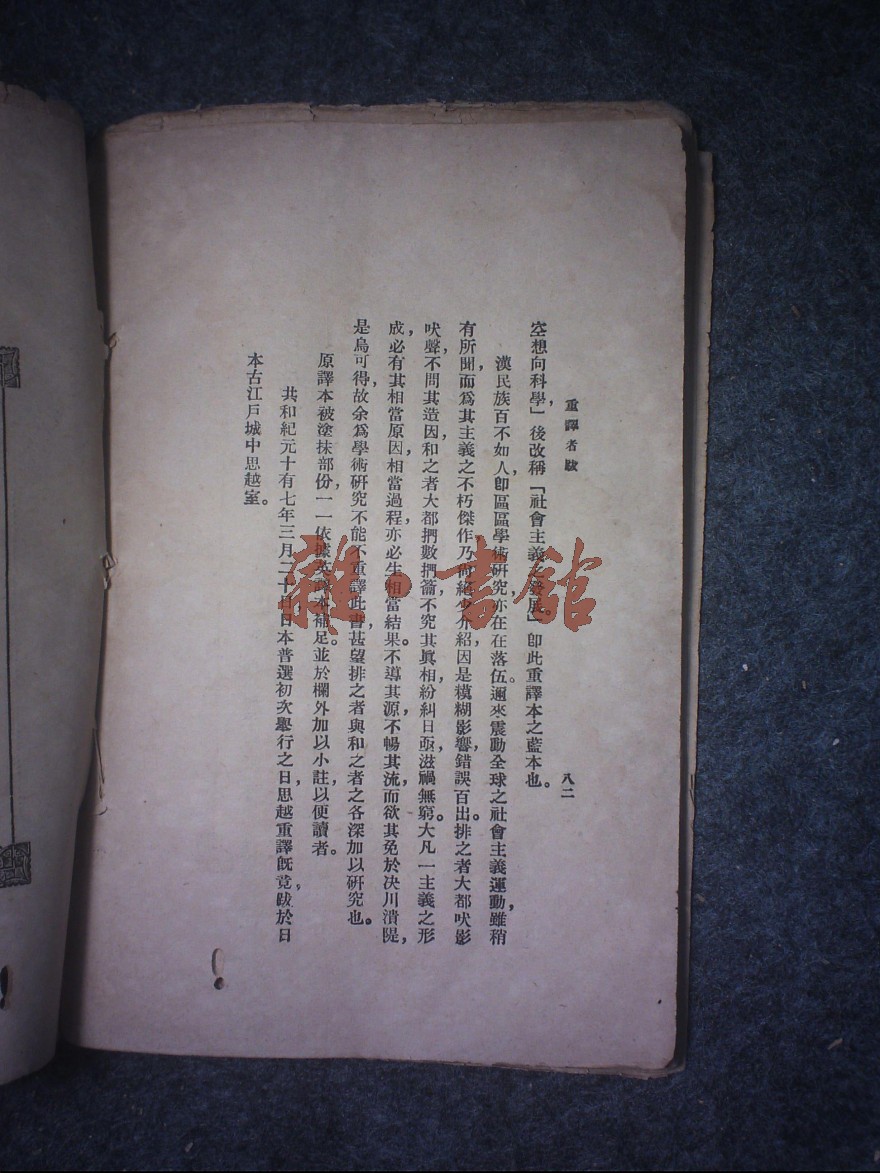 重譯者跋
八二
空想向科學」後改稱「社會主義之發展」卽此重譯本之藍本也。
漢民族百不如人，卽區區學術研究，亦在在落伍。邇來震動全球之社會主義運動，雖稍
有所聞，而爲其主義之不朽傑作，乃尙絕少介紹，因是模糊影響，錯誤百出。排之者大都吠影
吠聲，不問其造因，和之者大都捫數捫籥，不究其眞相，紛糾日亟，滋禍無窮。大凡一主義之形
成，必有其相當原因，相當過程，亦必生相當結果。不導其源，不暢其流，而欲其免於決川潰隄，
是烏可得，故余爲學術研究，不能不重譯此書，甚望排之者與和之者之各深加以研究也。
原譯本被塗抹部份，一一依據英譯本補足。並於欄外加以小註，以便讀者。
共和紀元十有七年三月二十日日本普選初次舉行之日，思越重譯旣竟，跋於日
本古江戶城中思越室。
雜·書館